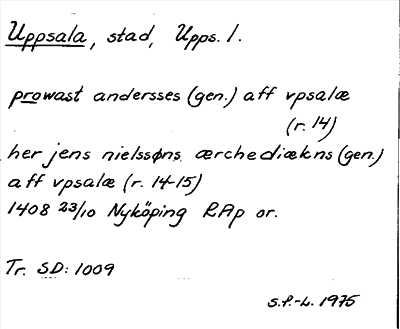 Uppsala, stad, Upps. l.
prowast andersses (gen.) aff vpsalæ
(r. 14)
her jens nielssøns ærchediækns (gen.)
aff vpsalæ (r. 14-15)
1408 23/10 Nyköping RAp or.
Tr. SD: 1009
S.P.-L. 1975